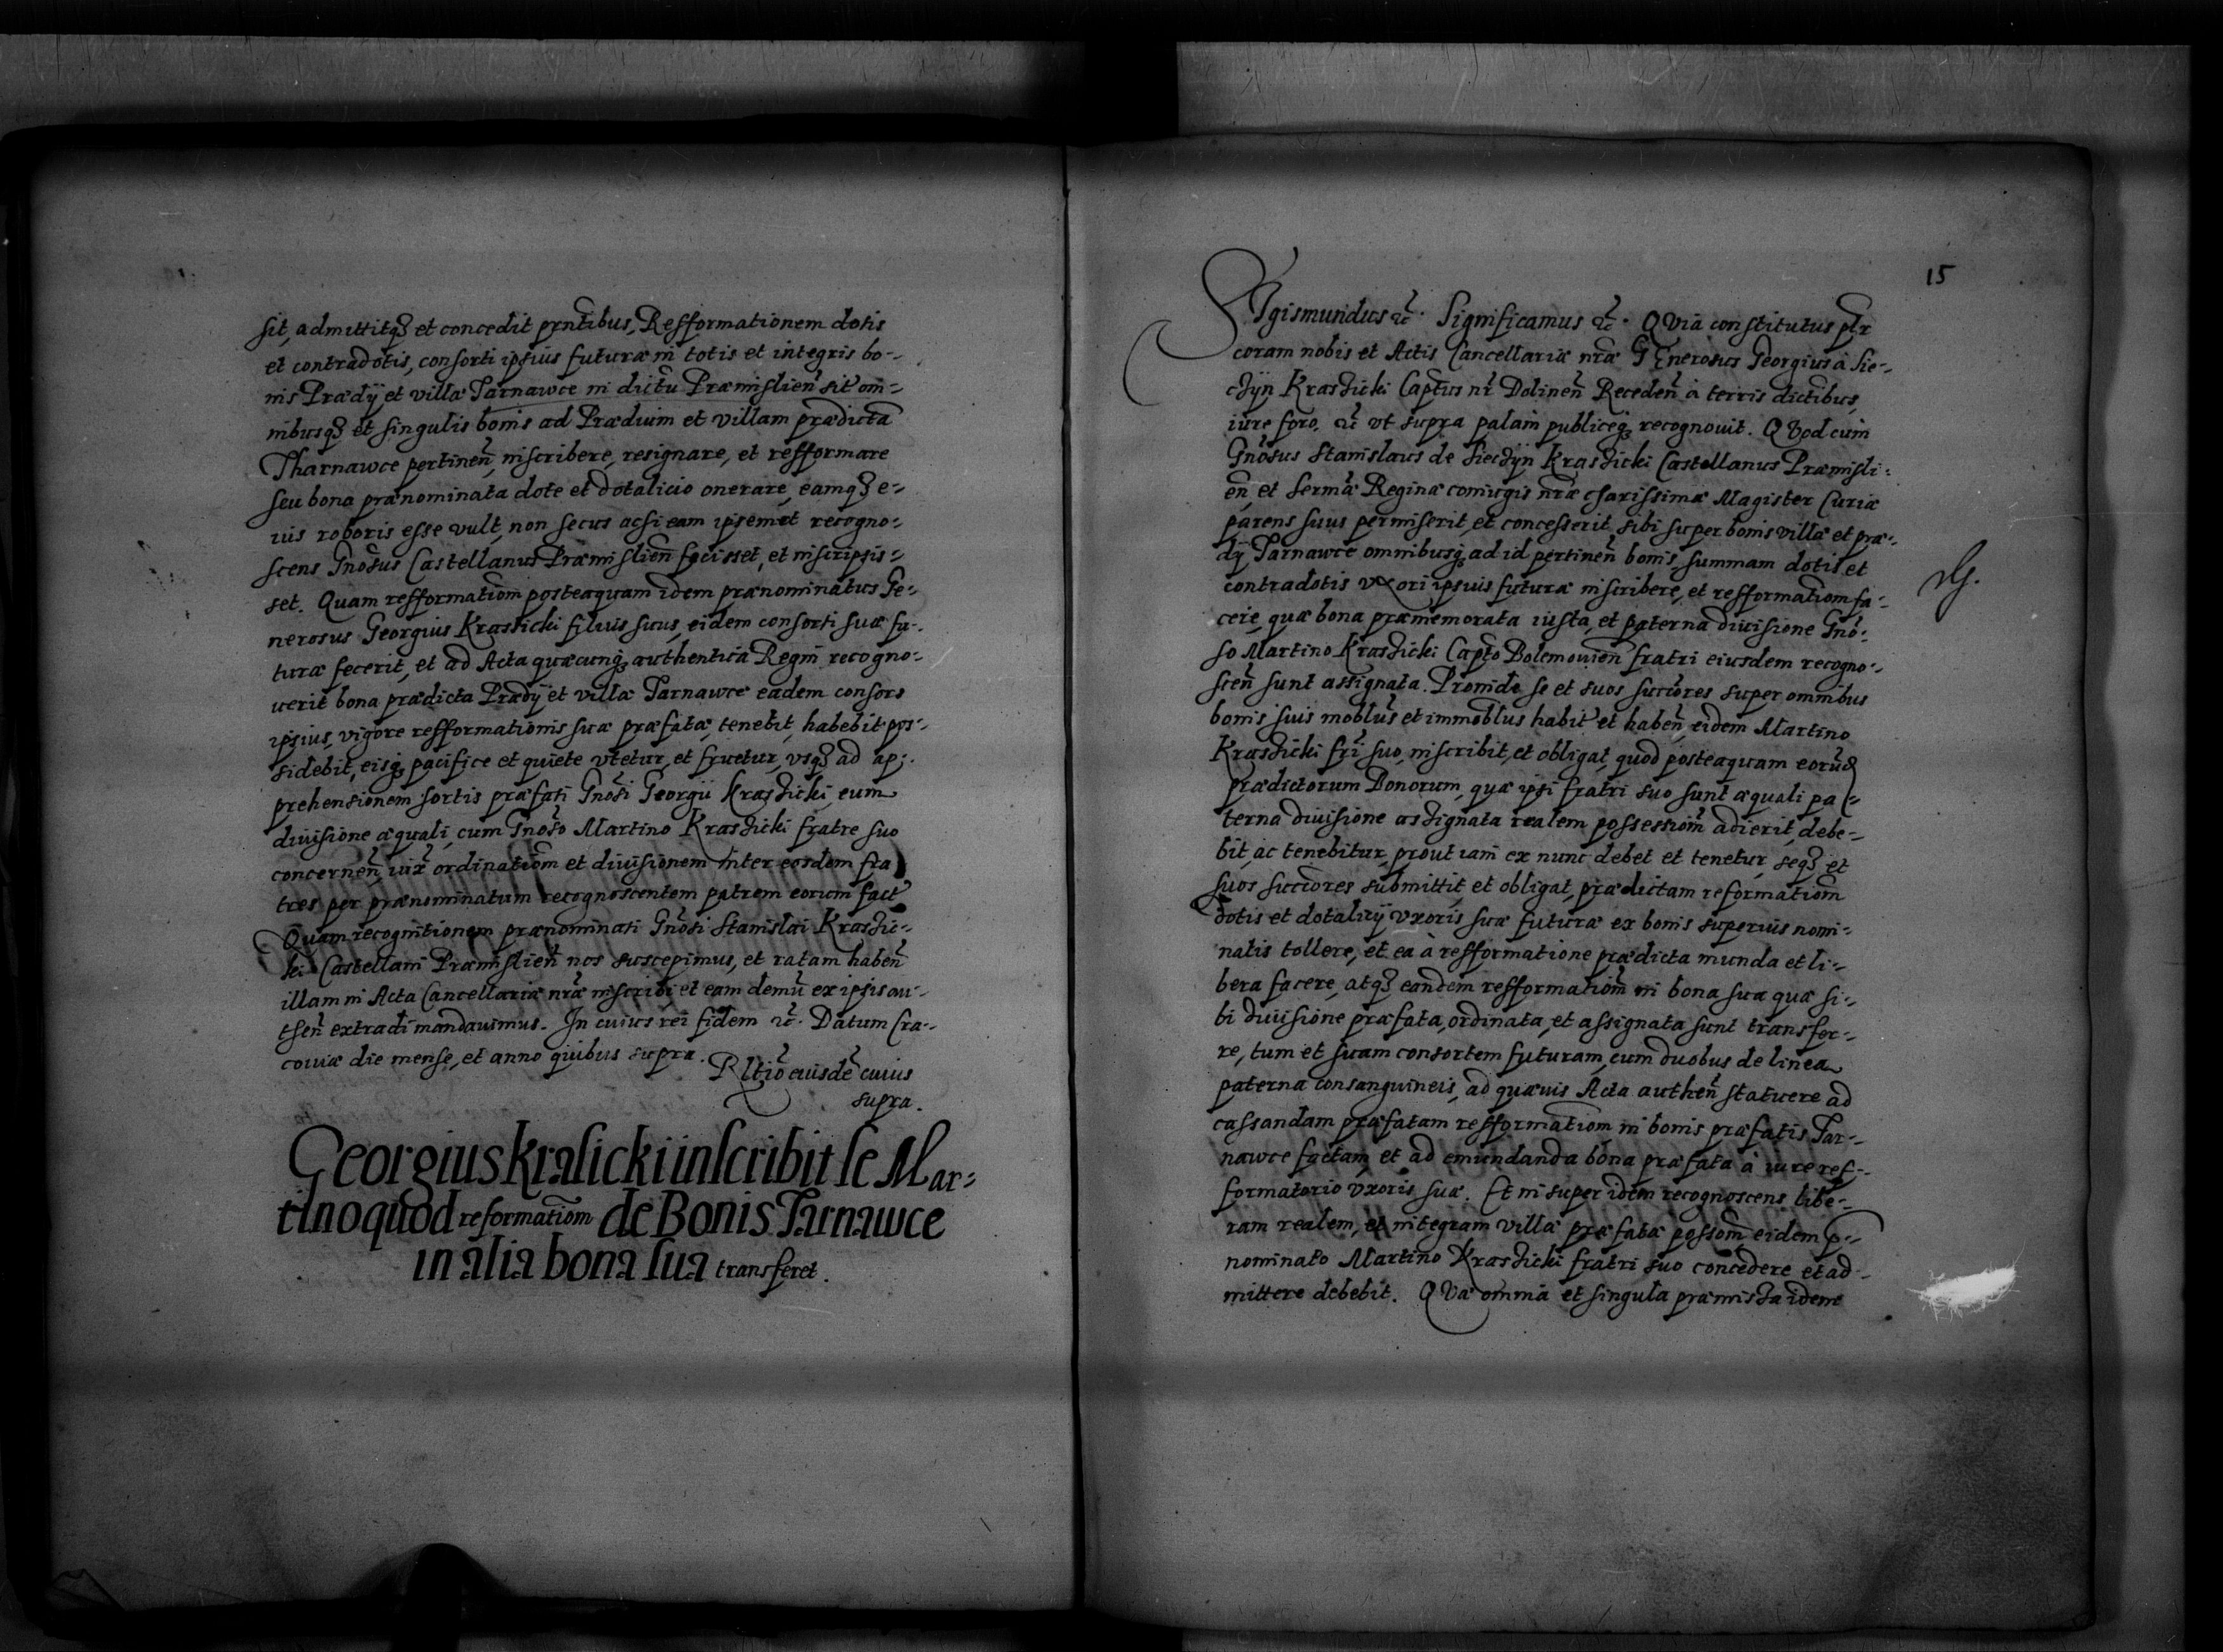 sit, admittitq3 et concedit pñtibus, Refformationem dotis
et contradotis, consorti ipsius futuræ in totis et integris bo-
nis Prædÿ et villæ Tarnawce in dictu Præmislien̄ sit om-
nibusq3 et singulis bonis ad Prædium et villam prædicta
Tharnawce pertinen̄, inscribere, resignare, et refformare
seu bona prænominata dote et dotalicio onerare, eamq3 e-
ius roboris esse vult, non secus acsi eam ipsemet recogno-
scens Gnōsus Castellanus Præmislien̄ fecisset, et inscripsis-
set. Quam refformatiom̄ posteaquam idem prænominatus Ge-
nerosus Georgius Krassicki filius suus, eidem consorti suæ fu-
turæ fecerit, et ad Acta quæcunq3 authentica Regni recogno-
uerit bona prædicta Prædÿ et villæ Tarnawce eadem consors
ipsius, vigore refformationis suæ præfatæ, tenebit, habebit pos-
sidebit, eisq3 pacifice et quiete vtetur, et fruetur, vsq3 ad ap-
prehensionem sortis præfati Gnōsi Georgii Krasicki, eum
diuisione æquali, cum Gnōso Martino Krasicki fratre suo
concernen̄, iux̄ ordinatiom̄ et diuisionem inter eosdem fra
tres per prænominatum recognoscentem patrem eorum fact̄
Quam recognitionem prænominati Gnōsi Stanislai Krasic-
ki Castellani Præmislien̄ nos suscepimus, et ratam haben̄
illam in Acta Cancellariæ nr̄æ inscribi, et eam demū ex ipsis au-
then̄ extradi mandauimus. In cuius rei fidem &c̄. Datum Cra-
couiæ die mense, et anno quibus supra.
Rltiō euisdē cuius
supra.
Georgius Krasicki inscribit se Mar-
tino quod reformatiom̄ de Bonis Tarnawce
in alia bona sua transferet.
15
Sigismundus &c̄. Significamus &c̄. QVia constitutus pl̄r
coram nobis et Actis Cancellariæ nr̄æ GEnerosus Georgius à Sie-
czÿn Krasicki Capt̄us nr̄ Dolinen̄ Receden̄ à terris dictibus,
iure foro, &c̄ vt supra palam publiceq3 recognouit. QVod cum
Gnōsus Stanislaus de Sieczÿn Krasicki Castellanus Præmisli-
en̄, et Serm̄æ Reginæ coniugis nr̄æ charissimæ Magister Curiæ
parens suus permiserit, et concesserit, sibi super bonis villæ et præ-
dÿ Tarnawce omnibusq3 ad id pertinen̄ bonis, summam dotis et
contradotis vxori ipsius futuræ inscribere, et refformatiom fa-
cere, quæ bona præmemorata iusta, et paterna diuisione Gnō-
so Martino Krasicki Capt̄o Bolemouien̄ fratri eiusdem recogno-
scen̄ sunt assignata. Proinde se et suos succōres super omnibus
bonis suis moblūs et immoblus habit̄ et haben̄, eidem Martino
Krasicki frī suo, inscribit, et obligat, quod posteaquam eorūd
prædictorum Bonorum, quæ ipsi fratri suo sunt æquali pa-
terna diuisione assignata realem possessiom̄ adierit, debe-
bit, ac tenebitur, prout iam ex nunc debet et tenetur, seq3 et
suos succōres submittit, et obligat, prædictam reformatiom̄
dotis et dotalitÿ vxoris suæ futuræ ex bonis superius nomi-
natis tollere, et ea à refformatione prædicta munda et li-
bera facere, atq3 eandem refformatiom̄ in bona sua quæ si-
bi diuisione præfata, ordinata, et assignata sunt transfer-
re, tum et suam consortem futuram, cum duobus de linea
paterna consanguineis, ad quæuis Acta authen̄ statuere ad
cassandam præfatam refformatiom in bonis præfatis Tar-
nawce factam, et ad emundanda bona præfata à iure ref-
formatorio vxoris suæ. Et insuper idem recognoscens libe-
ram realem, et integram, villæ præfatæ possom̄ eidem p-
nominato Martino Krasicki fratri suo concedere et ad-
mittere debebit. QVæ omnia et singula præmissa idem